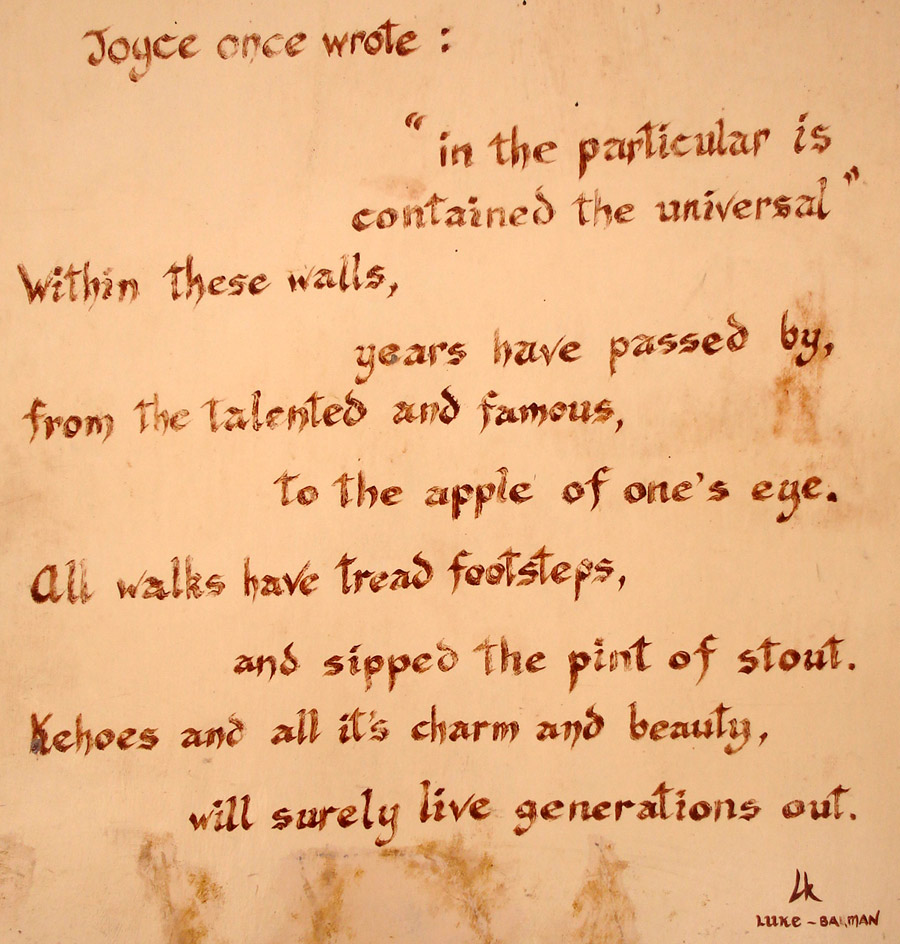 Joyce once wrote :
“ in the particular is
contained the universal ”
Within these walls,
years have passed by,
from the talented and famous,
to the apple of one's eye.
All walks have tread footsteps,
and sipped the pint of stout.
Kehoes and all it's charm and beauty,
will surely live generations out.
Lk
LUKE -